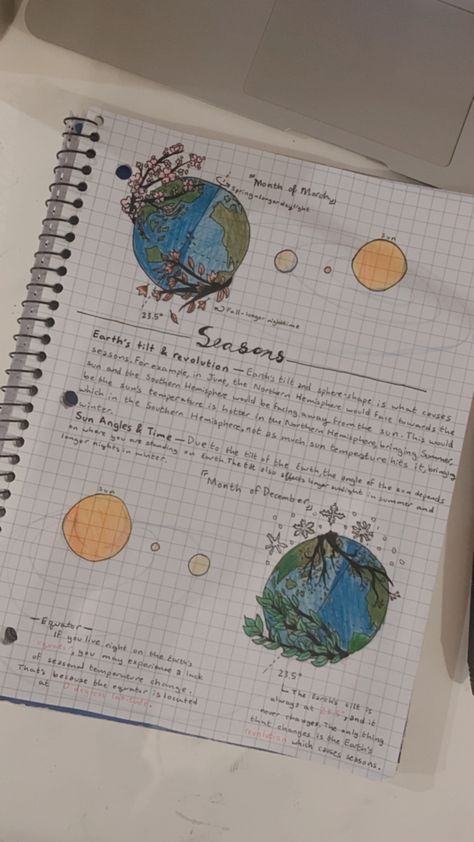 "Month of March"
Spring-longer daylight
Sun
23.5°
Fall-longer nighttime
Seasons
Earth's tilt & revolution — Earth's tilt and sphere-shape is what causes
seasons. For example, in June, the Northern Hemisphere would face towards the
sun and the Southern Hemisphere would be facing away from the sun. This would
be the sun's temperature is hotter in the Northern Hemisphere, bringing Summer,
which in the Southern Hemisphere, not as much sun temperature hits it, bringing
winter.
Sun Angles & Time — Due to the tilt of the Earth, the angle of the sun depends
on where you are standing on Earth. The tilt also affects longer sunlight in summer and
longer nights in winter.
"Month of December
Sun
—Equator—
If you live right on the Earth's
equator, you may experience a lack
of seasonal temperature change.
That's because the equator is located
at 0 degrees latitude.
23.5°
The Earth's tilt is
always at 23.5°, and it
never changes. The only thing
that changes is the Earth's
revolution which causes seasons.